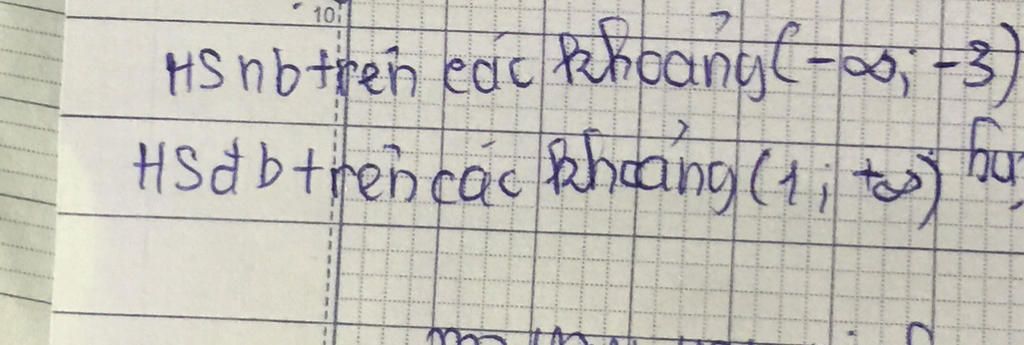 10
HS nb trên các khoảng (-∞; -3)
HS đb trên các khoảng (1; +∞)